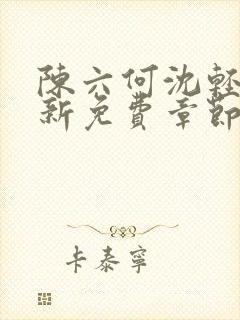 陳六何沈輕
新免費章節
卡泰寧